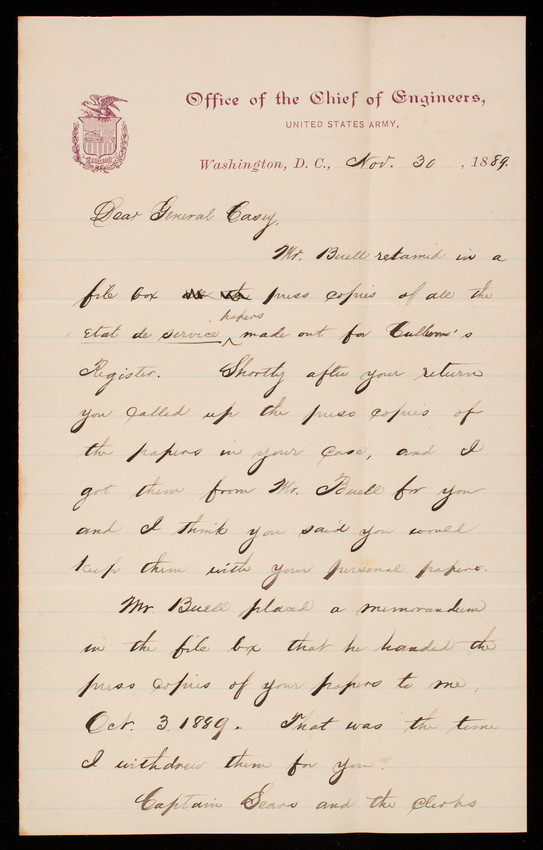 Office of the Chief of Engineers,
UNITED STATES ARMY,
Washington, D. C., Nov. 30, 1889.
Dear General Casey,
Mr. Buell retained in a
file box press copies of all the
papers
Etat de service made out for Cullum's
Register. Shortly after your return
you called up the press copies of
the papers in your case, and I
got them from Mr. Buell for you
and I think you said you would
keep them with your personal papers.
Mr Buell placed a memorandum
in the file box that he handed the
press copies of your papers to me,
Oct. 3. 1889. That was the time
I withdrew them for you.
Captain Sears and the clerks